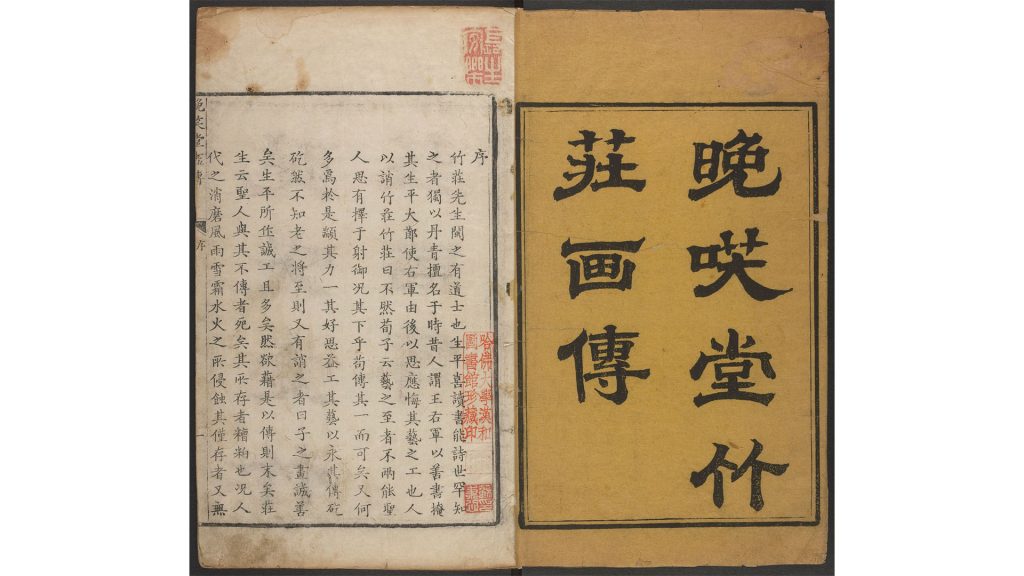 晚㗛堂竹
莊画傳
序
竹莊先生閩之有道士也生平喜讀書能詩世罕知
之者獨以丹青擅名于時昔人謂王右軍以善書掩
其生平大節使右軍由後以思應悔其藝之工也人
以誚竹莊竹莊曰不然荀子云藝之至者不兩能聖
人思有擇于射御况其下乎苟傳其一而可矣又何
多焉於是顓其力一其好思益工其藝以永其傳矻
矻然不知老之將至則又有誚之者曰子之畫誠善
矣生平所作誠工且多矣然欲藉是以傳則末矣莊
生云聖人與其不傳者死矣其所存者糟粕也况人
代之消磨風雨雪霜水火之所侵蝕其僅存者又無
哈佛大學漢和
圖書館珍藏印